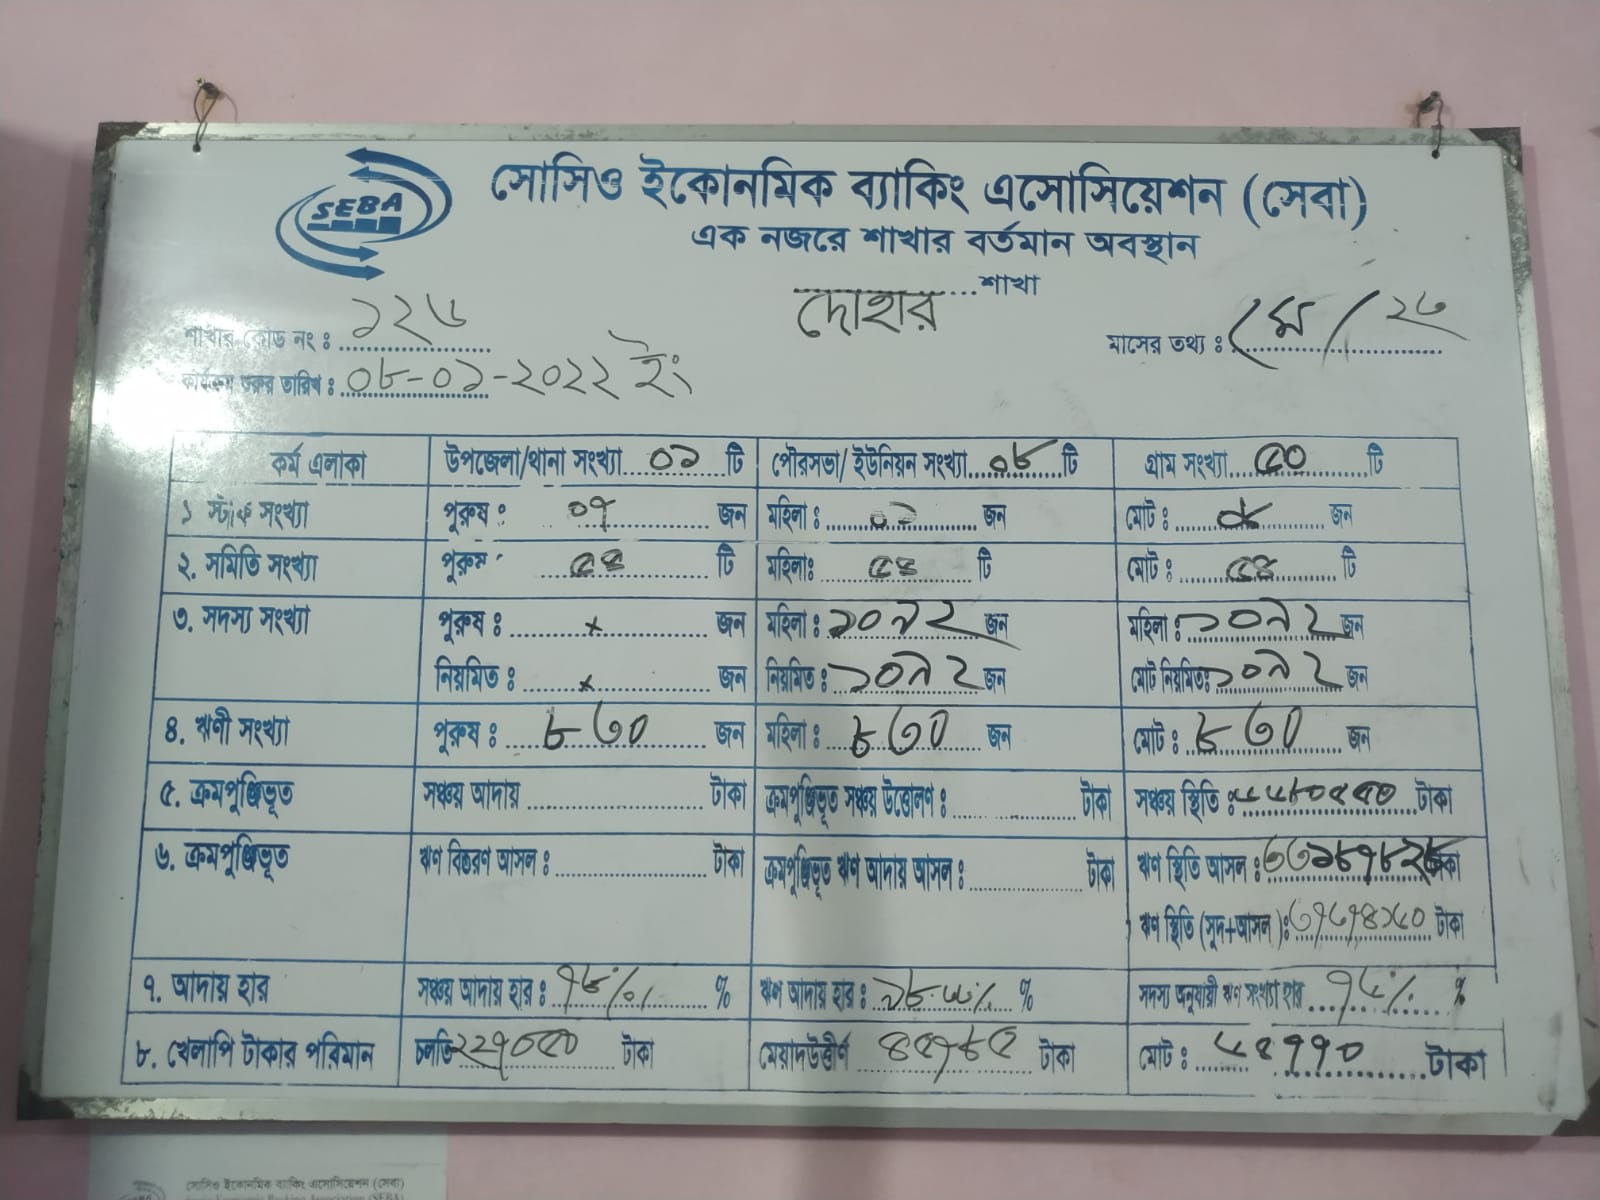 SEBA
সোসিও ইকোনমিক ব্যাকিং এসোসিয়েশন (সেবা)
এক নজরে শাখার বর্তমান অবস্থান
দোহার শাখা
শাখার কোড নং : ১২৬
মাসের তথ্য : মে / ২৬
কার্যক্রম শুরুর তারিখ : ০৮-০১-২০২২ ইং
কর্ম এলাকা উপজেলা/থানা সংখ্যা ০১ টি পৌরসভা/ ইউনিয়ন সংখ্যা ০৮ টি গ্রাম সংখ্যা ৫০ টি
১ স্টাফ সংখ্যা পুরুষ : ০৭ জন মহিলা : ০১ জন মোট : ০৮ জন
২. সমিতি সংখ্যা পুরুষ ৫৪ টি মহিলাঃ ৫৪ টি মোট : ৫৪ টি
৩. সদস্য সংখ্যা পুরুষ : × জন মহিলা : ১০৯২ জন মহিলা : ১০৯২ জন
নিয়মিত : × জন নিয়মিত : ১০৯২ জন মোট নিয়মিতঃ ১০৯২ জন
৪. ঋণী সংখ্যা পুরুষ : ৮৩০ জন মহিলা : ৮৩০ জন মোট : ৮৩০ জন
৫. ক্রমপুঞ্জিভূত সঞ্চয় আদায় টাকা ক্রমপুঞ্জিভূত সঞ্চয় উত্তোলণ : টাকা সঞ্চয় স্থিতি : টাকা
৬. ক্রমপুঞ্জিভূত ঋণ বিতরণ আসল : টাকা ক্রমপুঞ্জিভূত ঋণ আদায় আসল : টাকা ঋণ স্থিতি আসল : ৩৩১৮৭৮২৮ টাকা
ঋণ স্থিতি (সুদ+আসল ): টাকা
৭. আদায় হার সঞ্চয় আদায় হার : ৭৮% % ঋণ আদায় হার : % সদস্য অনুযায়ী ঋণ সংখ্যা হার %
৮. খেলাপি টাকার পরিমান চলতি ২২৭০৫০ টাকা মেয়াদউত্তীর্ণ টাকা মোট : টাকা
সোসিও ইকোনমিক ব্যাকিং এসোসিয়েশন (সেবা)